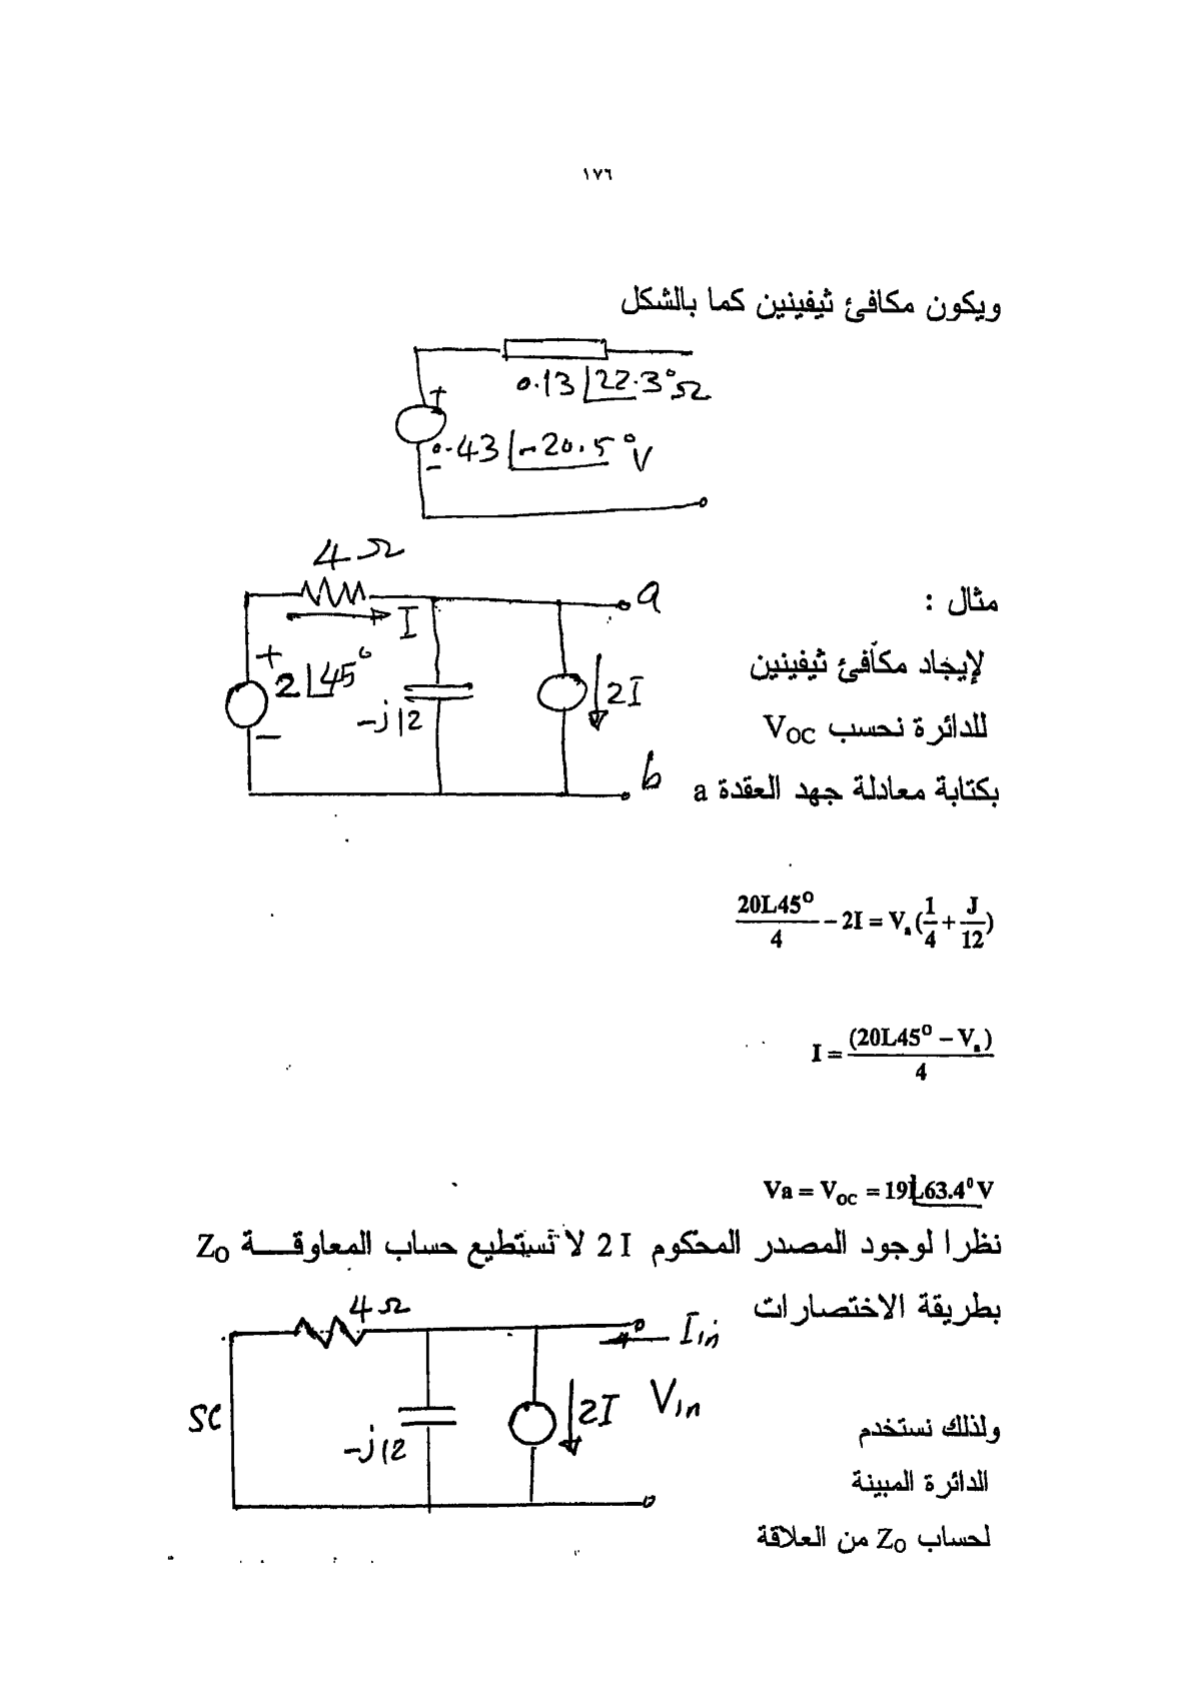 ١٧٦
ويكون مكافئ ثيفينين كما بالشكل
0.13 ∠22.3° Ω
+
0.43 ∠-20.5° V
-
4Ω
I
a
+
2∠45°
-
-j12
2I
b
مثال :
لإيجاد مكافئ ثيفينين
للدائرة نحسب VOC
بكتابة معادلة جهد العقدة a
20L45° / 4 - 2I = Va (1/4 + J/12)
I = (20L45° - Va) / 4
Va = VOC = 19L63.4° V
نظرا لوجود المصدر المحكوم 2 I لا تستطيع حساب المعاوقـــة ZO
بطريقة الاختصارات
4Ω
Iin
SC
-j12
2I
Vin
ولذلك نستخدم
الدائرة المبينة
لحساب ZO من العلاقة